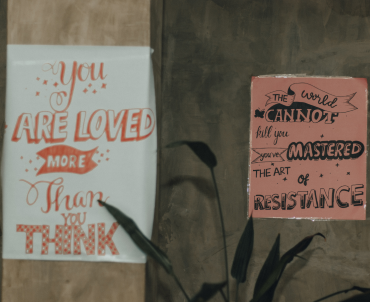 You
ARE LOVED
MORE
Than
YOU
THINK
THE world
CANNOT
kill you
you've MASTERED
THE ART
of
RESISTANCE